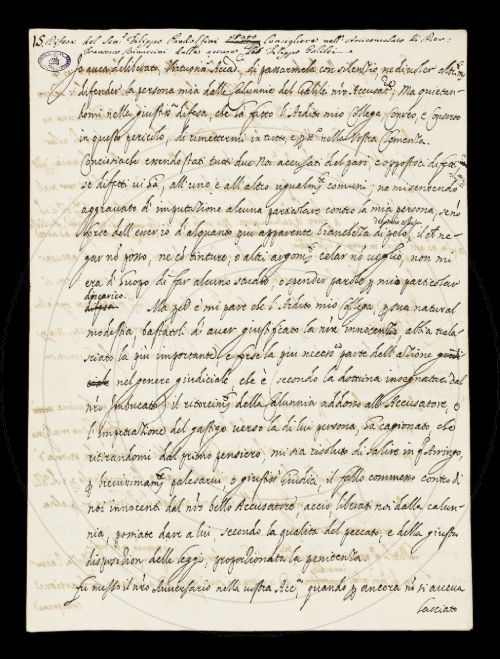 15. Difesa del Sen.r Filippo Pandolfini stato Consigliere nell'Arciconsolato di Pier-
Francesco Rinuccini dalle accuse Filippo Galilei
Io aveva deliberato, Virtuosi Accad.ci di passarmela con silenzio, ne di voler altrim.
difender la persona mia dalle calunnie del Nobile n̄ro Accusat.re Ma quietan-
domi nella giustiss.a difesa, che ha fatto l'Ardito mio Collega, Correo, e Consorte
in questo pericolo, di rimettermi in tutto, e p tutto nella Vostra Clemenza.
Conciosiache essendo stati tutti due noi accusati del pari, e oppostoci di fal-
se difetti all'uno, e all'altro ugualm.te comuni; ne mi sentendo
aggravato d'imputazione alcuna particolare contro la mia persona, se nō
forse dell'esservi d'alquanto piu apparente bianchezza di pelo, il che ne-
gar nō posso, ne cō tinture, o altri argom.ti celar nō voglio, non mi
era d'huopo di far alcuno studio, o spender parole p mio particolar
discarico.
difesa. Ma pche è mi pare che l'Ardito mio Collega, p sua natural
modestia, bastatoli d'aver giustificato la n̄ra innocenza, abbia trala-
sciato la più importante, e forse la più necess.a parte dell'azione
nel genere giudiciale, che è, secondo la dottrina insegnatra dal
n̄ro Imbucato, il ritorcim.to della calunnia addosso all'Accusatore, e
l'impetrazione del gastigo verso la di lui persona, ha cagionato, che
ritirandomi dal primo pensiero, mi sia risoluto di salire in q.sto Aringo,
p brevissimam.te palesarvi, o giustiss.i Giudici, il fallo commesso contro di
noi innocenti dal n̄ro bello Accusatore, acciò liberati noi dalla calun-
nia, possiate dare a lui, secondo la qualità del peccato, e della giusta
disposizion delle leggi, proporzionata la penitenza.
Fu messo il n̄ro Avversario nella vostra Acc.a, quando p ancora nō si aveva
lasciato